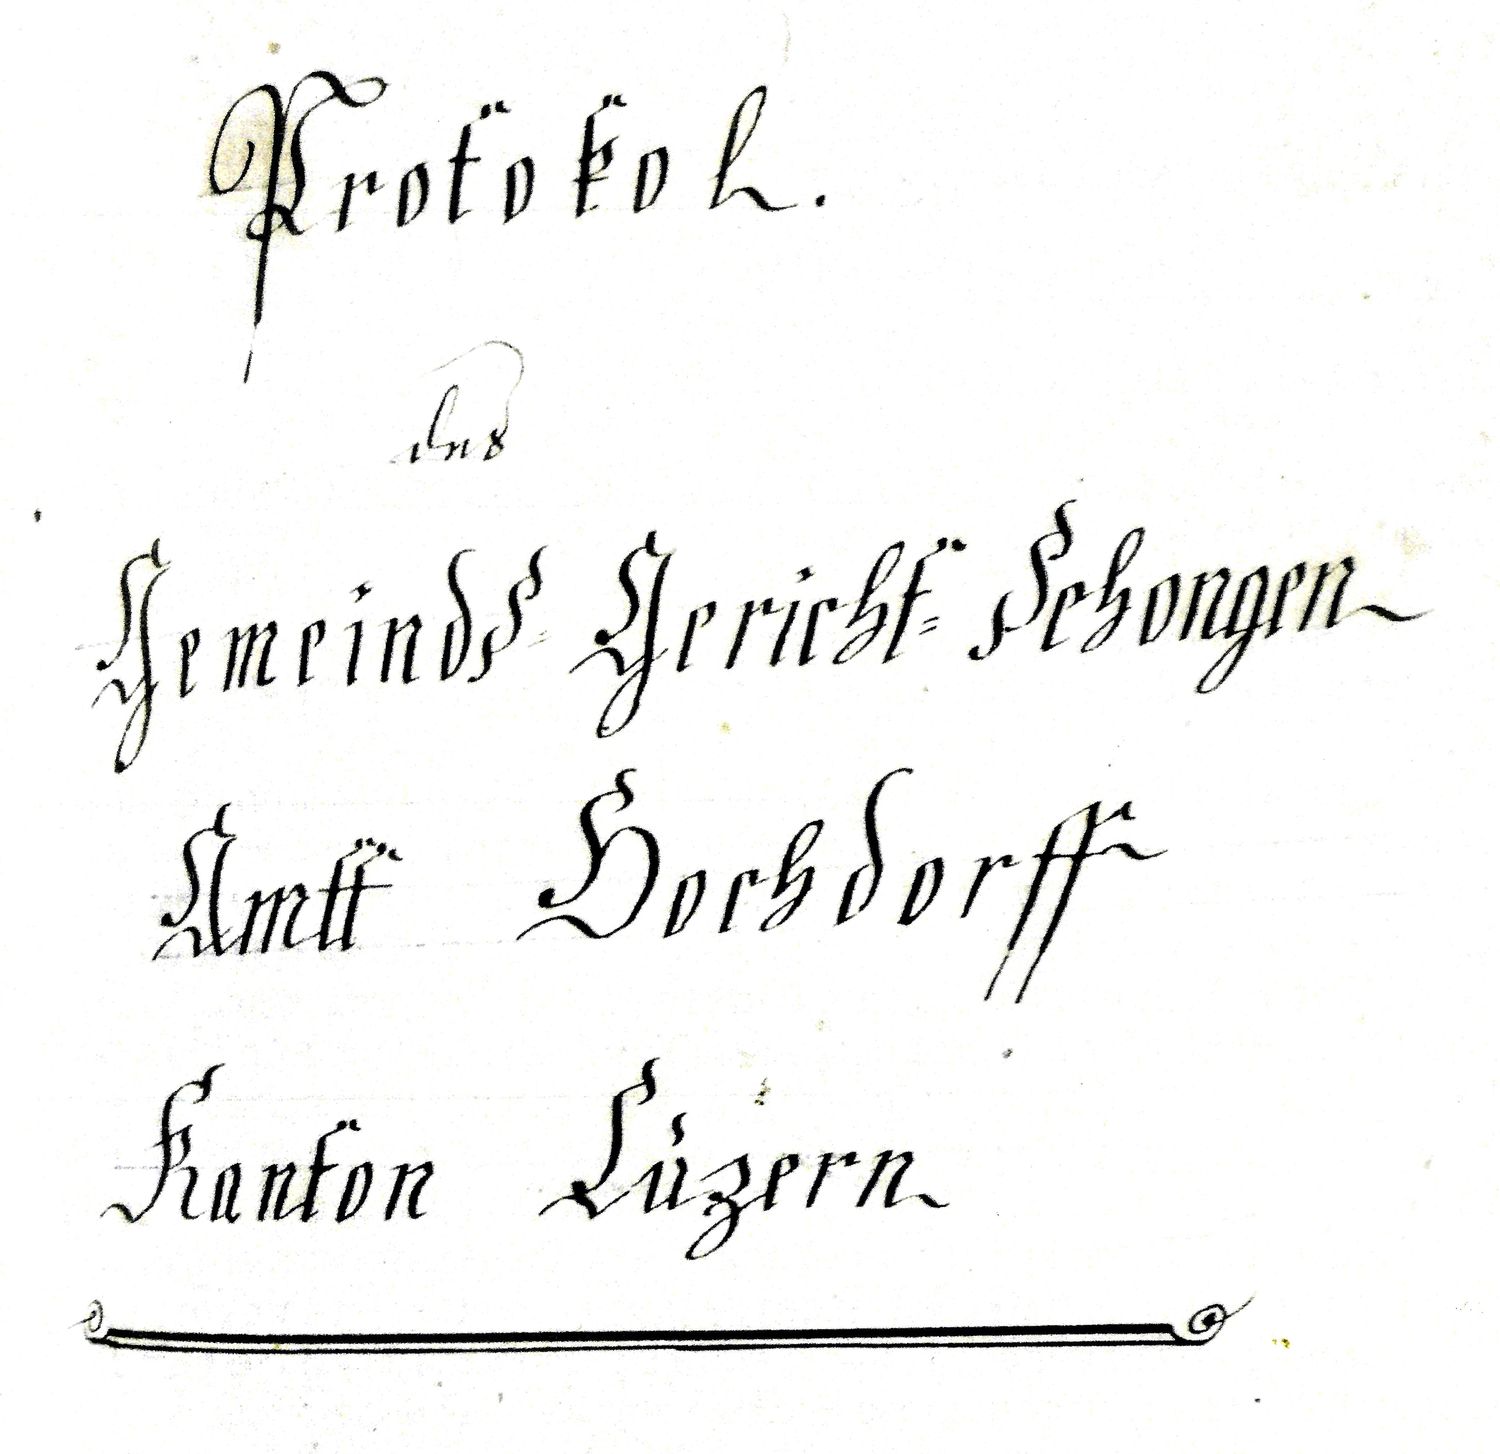 Protokol.
des
Gemeinds- Gericht= Schongen
Amtt Hochdorff
Kanton Luzern